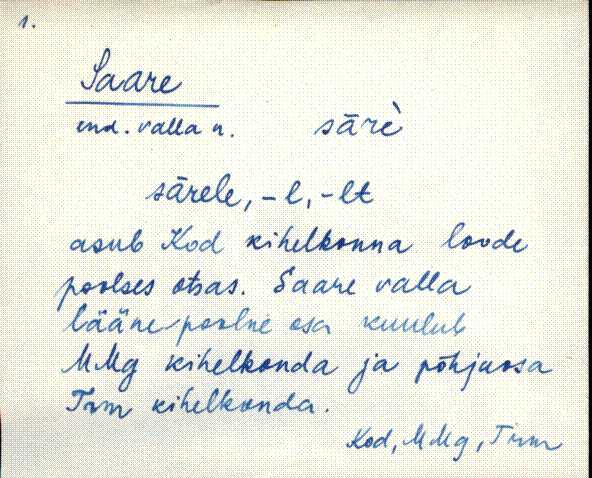 1.
Saare
end. valla n. särè
särele, -l, -lt
asub Kod kihelkonna loode
poolses otsas. Saare valla
lääne-poolne osa kuulub
MMg kihelkonda ja põhjaosa
Trm kihelkonda.
Kod, MMg, Trm